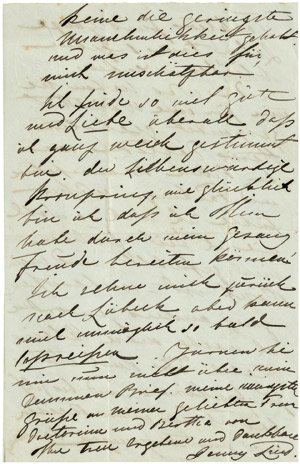 keine die geringste
Unannehmlichkeit gehabt
und was ist dies für
mich unschätzbar
Ich finde so viel Güte
und Liebe überall daß
ich ganz weich gestimmt
bin. der liebenswürdige
Kronprinz, wie glücklich
bin ich daß ich Ihm
habe durch mein Gesang
Freude bereiten können!
Ich sehne mich zurück
nach Lübeck, aber kann
unmöglich so bald
abreisen. Zürnen Sie
mir nun nicht über mein
dummen Brief. meine innigste
Grüße an meiner geliebten Frau
Pastorinn und Bertha von
Ihr treu ergebene und dankbare
Jenny Lind.